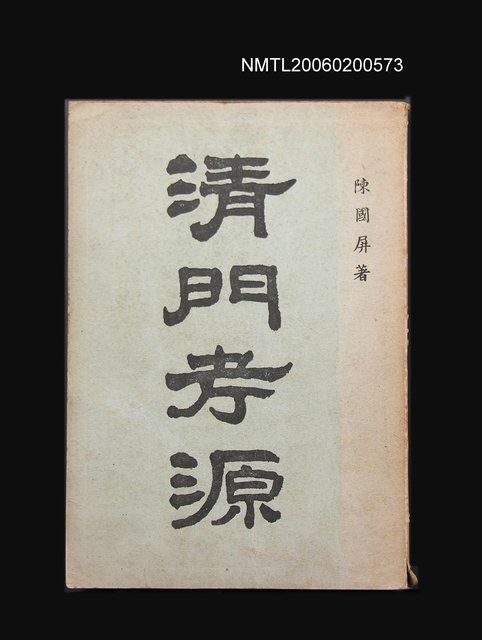 NMTL20060200573
陳國屏著
清門考源